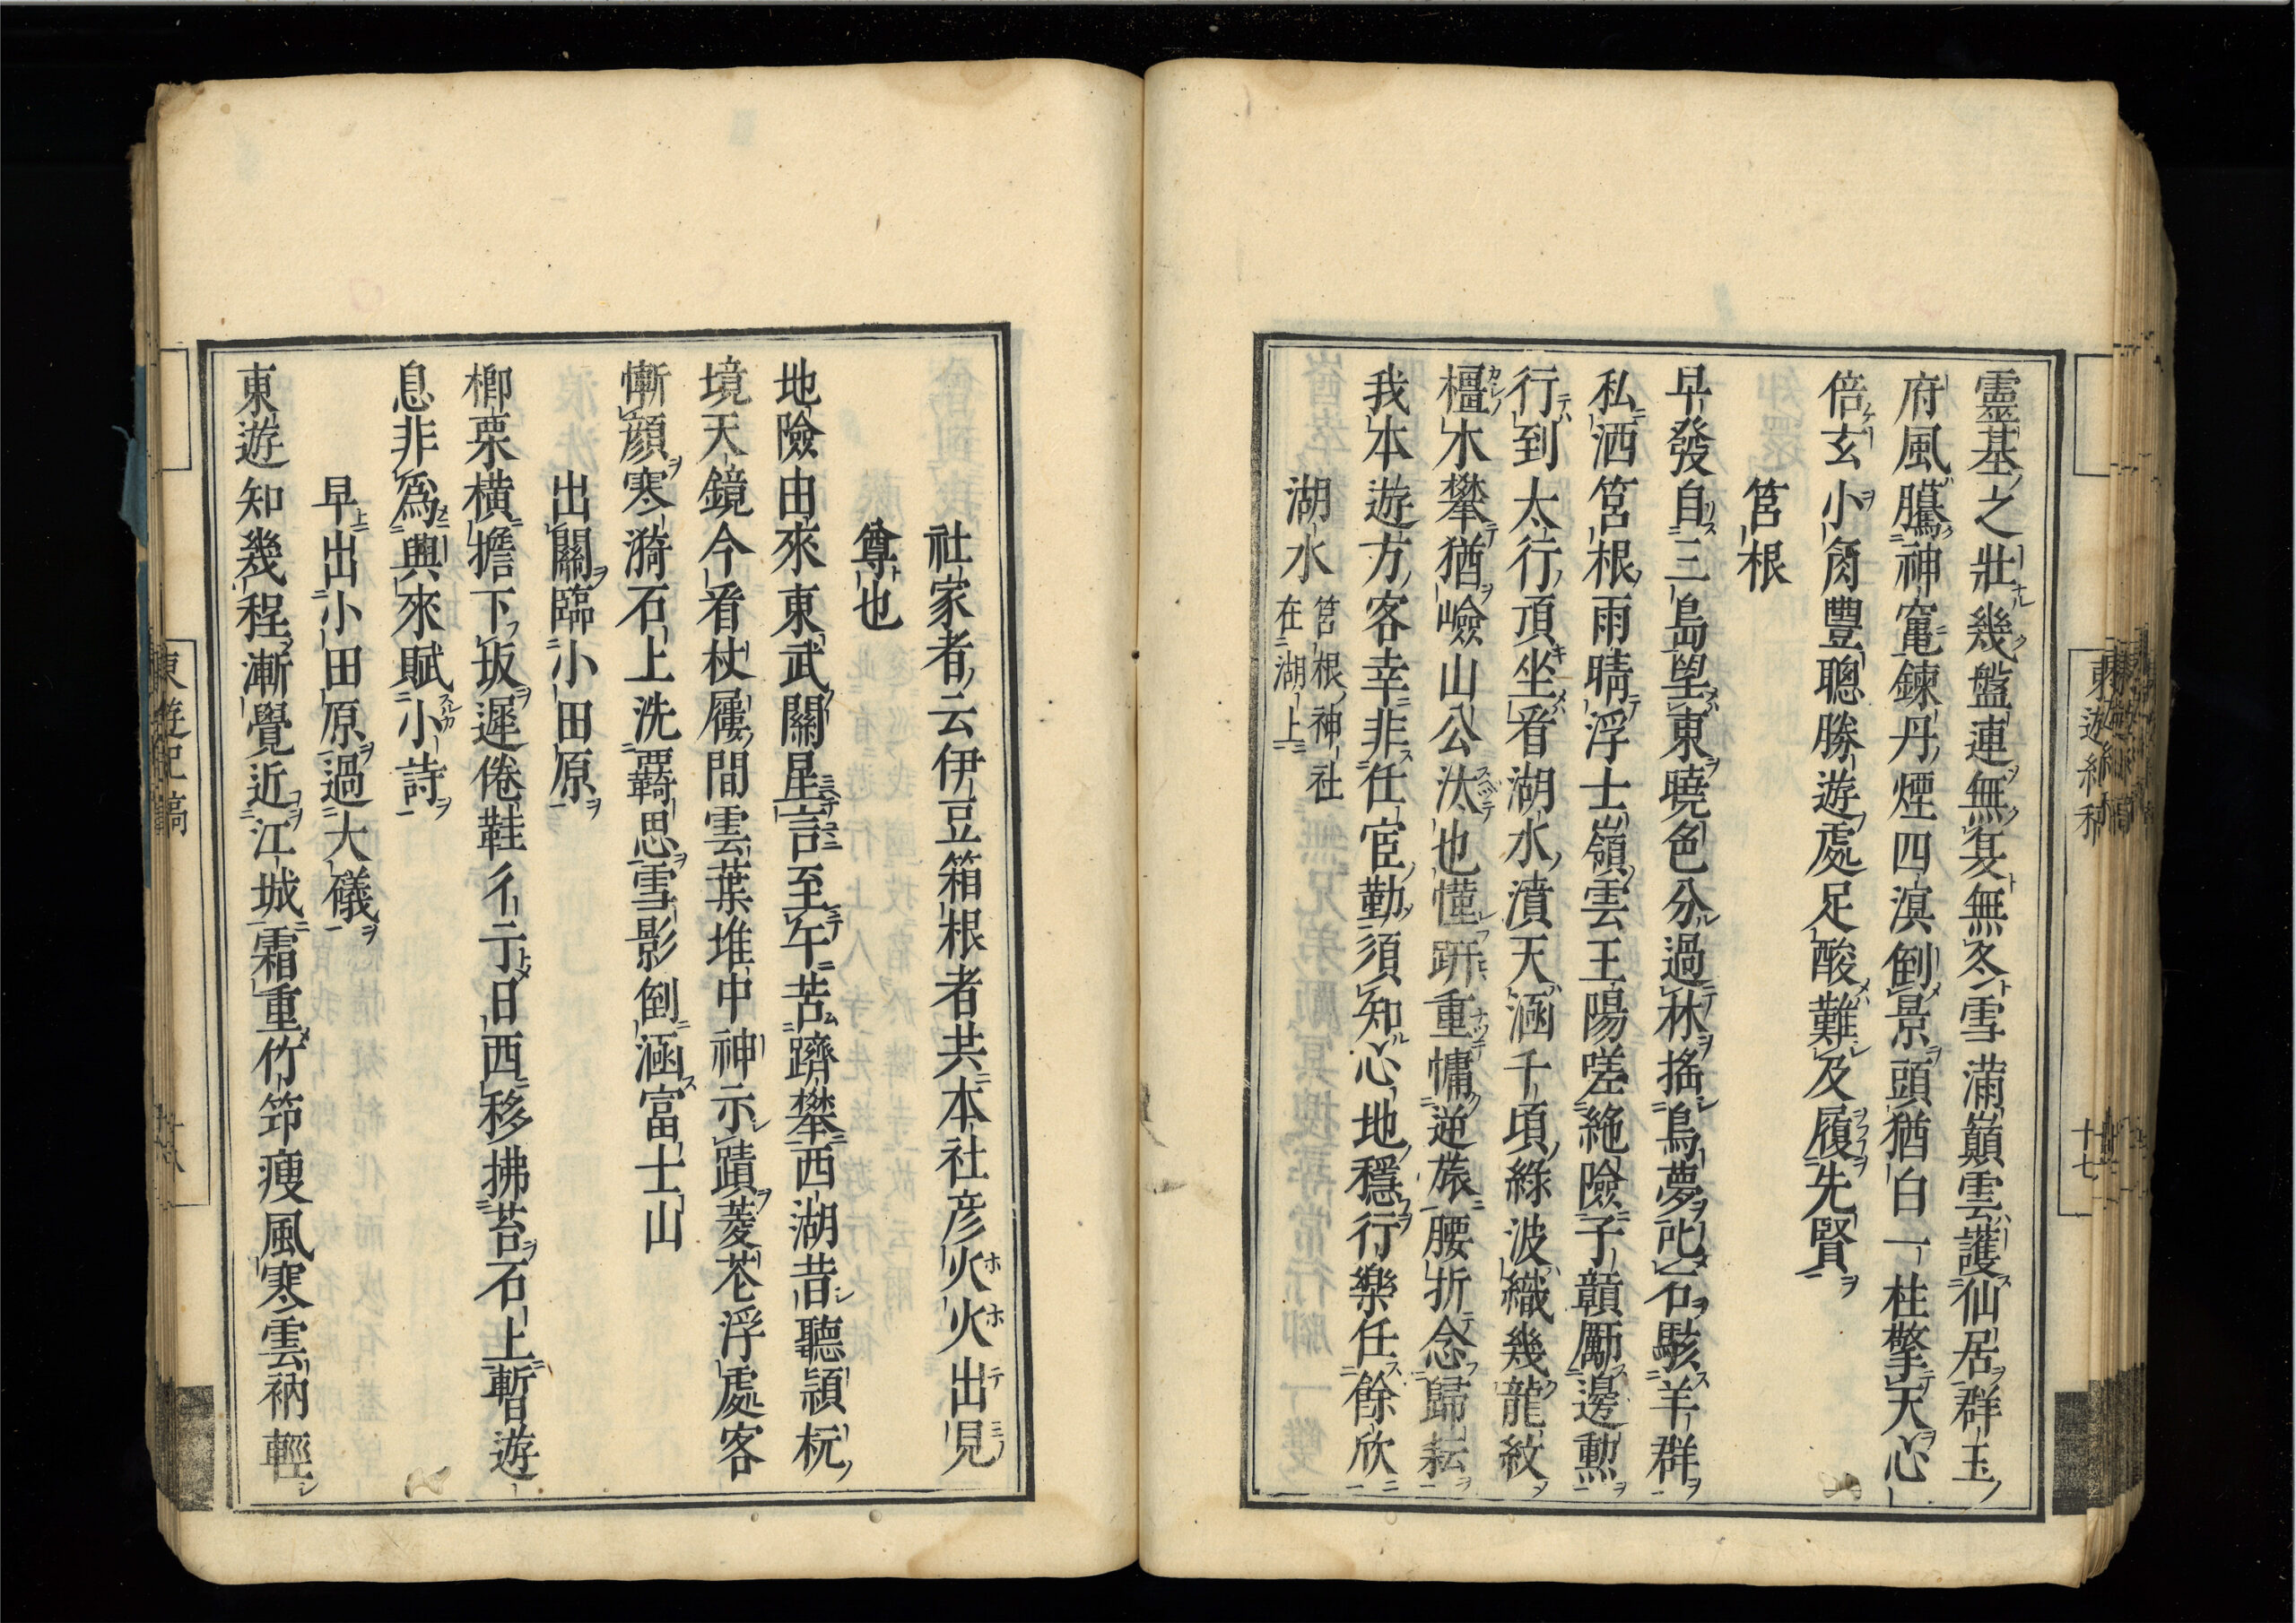 靈基之壯幾盤連無夏無冬雪滿巓雲護仙居群玉
府風驣神竃鍊丹煙四溟倒景頭猶白一柱擎天心
倍玄小肉豐聰勝遊處足酸難及履先賢
筥根
早發自三島望東曉色分過林搖鳥夢叱石駭羊群
私洒筥根雨晴浮士嶺雲王陽嗟絶險子贛勵邊勲
行到太行頂坐看湖水濆天涵千頃綠波織幾龍紋
橿木攀猶嶮山公汰也慬趼重慵逆旅腰折念歸耘
我本遊方客幸非任宦勤須知心地穩行樂任餘欣
湖水 筥根神社
在湖上
社家者云伊豆箱根者共本社彦火火出見
尊也
地險由來東武關星言至午苦躋攀西湖昔聽頴杬
境天鏡今看杖屨間雲葉堆中神示蹟菱芲浮處客
慚顔寒漪石上洗覊思雪影倒涵富士山
出關臨小田原
楖栗横擔下坂遲倦鞋彳亍日西移拂苔石上暫遊
息非爲興來賦小詩
早出小田原過大礒
東遊知幾程漸覺近江城霜重竹笻瘦風寒雲衲輕
東遊紀稿
十七